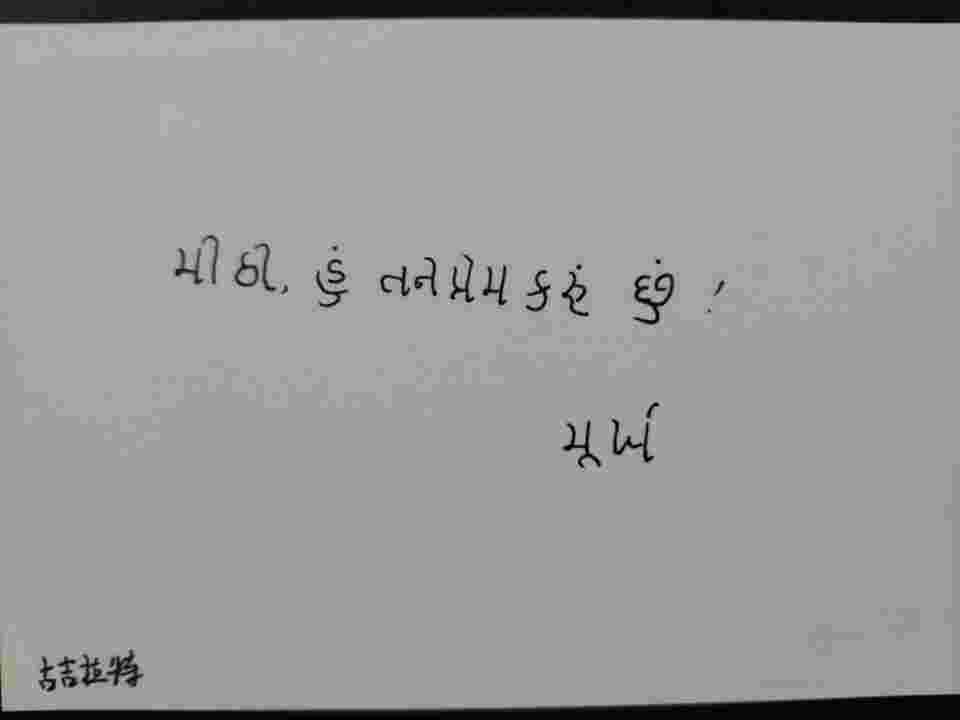 મીઠી, હું તને પ્રેમ કરું છું !
મૂર્ખ
古吉拉特